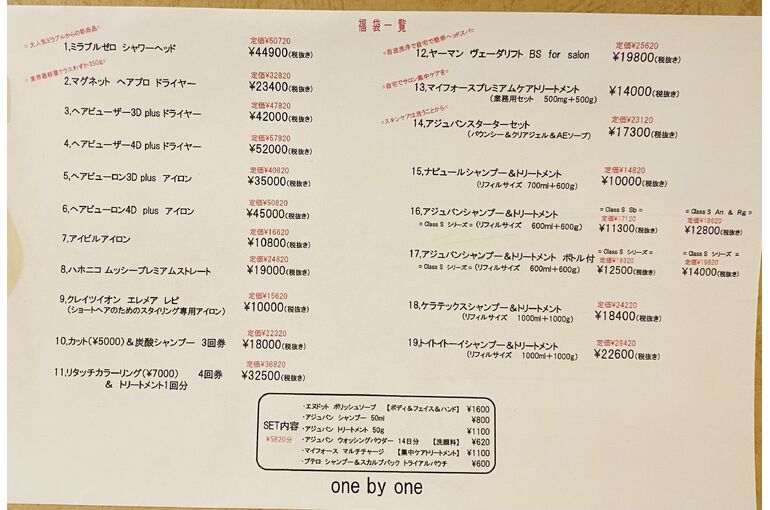 福袋一覧
=大人気ミラブルからの新商品=
1,ミラブルゼロ シャワーヘッド
定価¥50720
¥44900(税抜き)
=業界最軽量クラスわずか350g=
2,マグネット ヘアプロ ドライヤー
定価¥32820
¥23400(税抜き)
3,ヘアビューザー3D plusドライヤー
定価¥47820
¥42000(税抜き)
4,ヘアビューザー4D plusドライヤー
定価¥57820
¥52000(税抜き)
5,ヘアビューロン3D plus アイロン
定価¥40820
¥35000(税抜き)
6,ヘアビューロン4D plus アイロン
定価¥50820
¥45000(税抜き)
7,アイビルアイロン
定価¥16620
¥10800(税抜き)
8,ハホニコ ムッシープレミアムストレート
定価¥24820
¥19000(税抜き)
9,クレイツイオン エレメア レピ
(ショートヘアのためのスタイリング専用アイロン)
定価¥15620
¥10000(税抜き)
10,カット(¥5000)&炭酸シャンプー 3回券
定価¥22320
¥18000(税抜き)
11,リタッチカラーリング(¥7000) 4回券
& トリートメント1回分
定価¥36820
¥32500(税抜き)
=音波洗浄で自宅で簡単ヘッドスパ=
12,ヤーマン ヴェーダリフト BS for salon
定価¥25620
¥19800(税抜き)
=自宅でサロン集中ケアを=
13,マイフォースプレミアムケアトリートメント
(業務用セット 500mg+500g)
¥14000(税抜き)
=スキンケアは洗うことから=
14,アジュバンスターターセット
(バウンシー&クリアジェル&AEソープ)
定価¥23120
¥17300(税抜き)
15,ナピュールシャンプー&トリートメント
(リフィルサイズ 700ml+600g)
定価¥14820
¥10000(税抜き)
16,アジュバンシャンプー&トリートメント
=Class S シリーズ=(リフィルサイズ 600ml+600g)
=Class S Sb=
定価¥17120
¥11300(税抜き)
=Class S An & Rg=
定価¥18620
¥12800(税抜き)
17,アジュバンシャンプー&トリートメント ボトル付
=Class S シリーズ=(リフィルサイズ 600ml+600g)
=Class S シリーズ=
定価¥18320
¥12500(税抜き)
=Class S シリーズ=
定価¥19820
¥14000(税抜き)
18,ケラテックスシャンプー&トリートメント
(リフィルサイズ 1000ml+1000g)
定価¥24220
¥18400(税抜き)
19,トイトイトーイシャンプー&トリートメント
(リフィルサイズ 1000ml+1000g)
定価¥28420
¥22600(税抜き)
SET内容
¥5820分
・エヌドット ポリッシュソープ 【ボディ&フェイス&ハンド】 ¥1600
・アジュバン シャンプー 50ml ¥800
・アジュバン トリートメント 50g ¥1100
・アジュバン ウォッシングパウダー 14日分 【洗顔料】 ¥620
・マイフォース マルチチャージ 【集中ケアトリートメント】 ¥1100
・プテロ シャンプー&スカルプパック トライアルパウチ ¥600
one by one